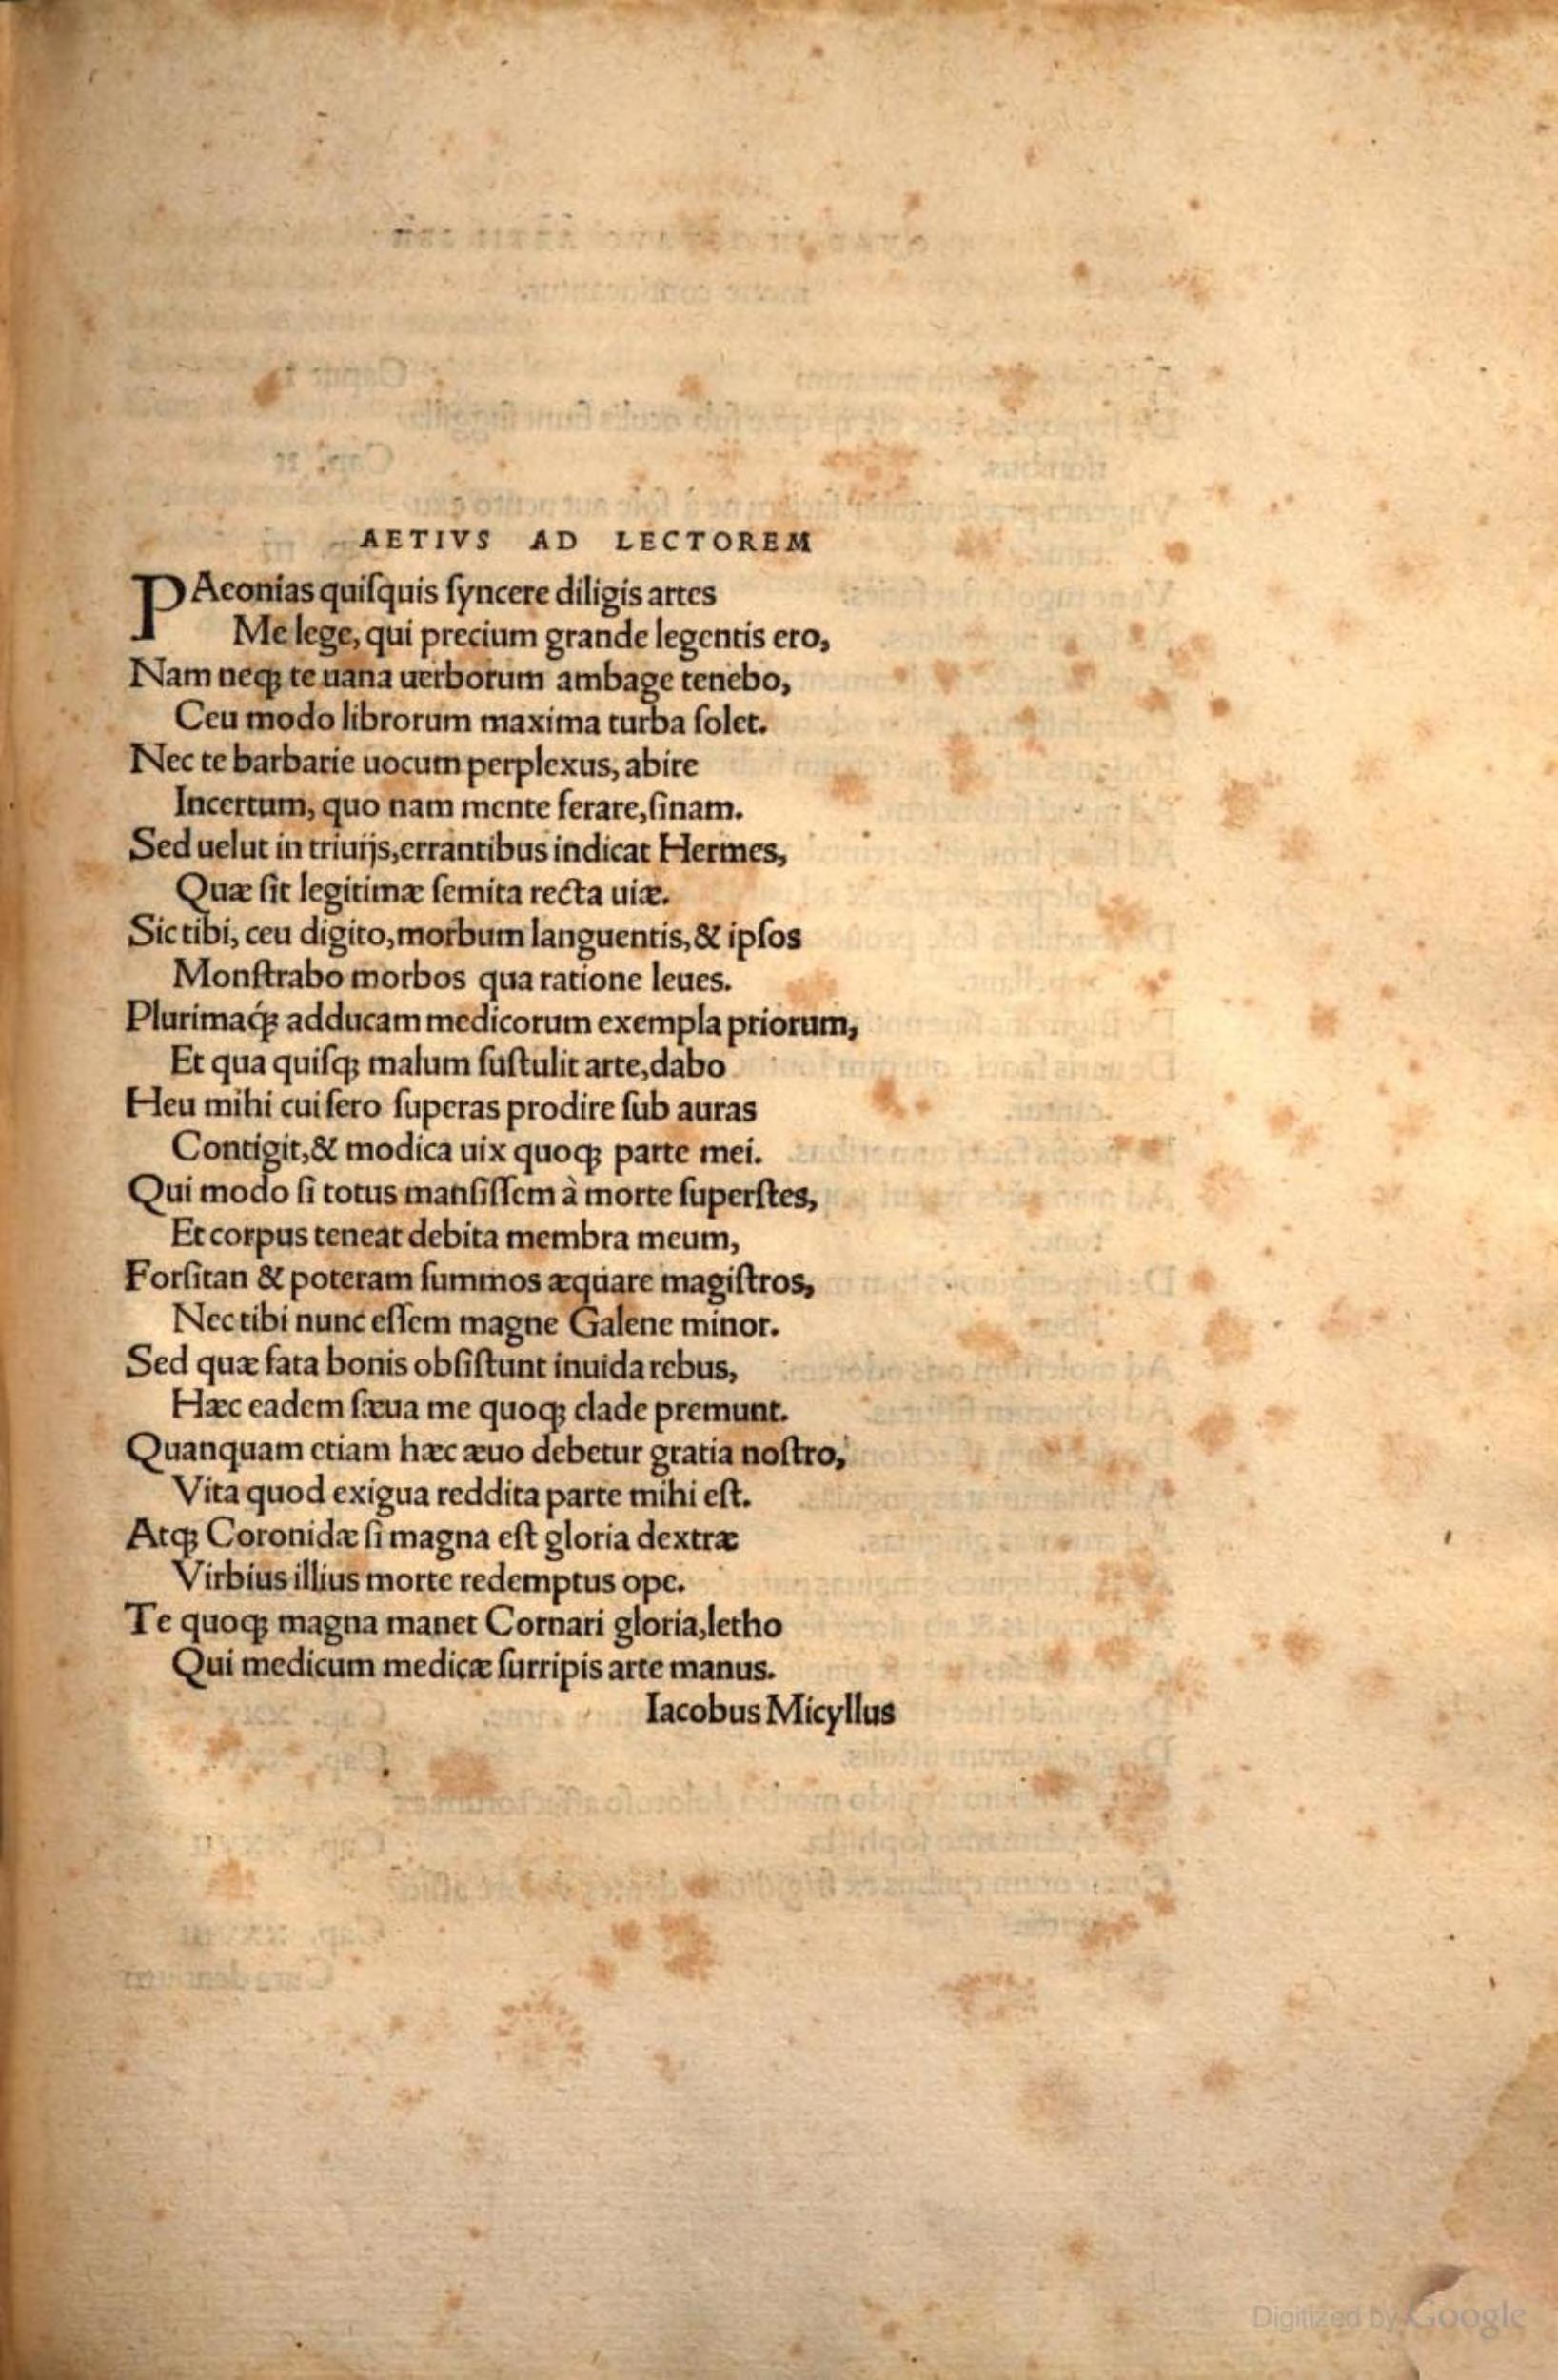 AETIVS AD LECTOREM
PAeonias quiſquis ſyncere diligis artes
Me lege, qui precium grande legentis ero,
Nam neq; te uana uerborum ambage tenebo,
Ceu modo librorum maxima turba ſolet.
Nec te barbarie uocum perplexus, abire
Incertum, quo nam mente ferare, ſinam.
Sed uelut in triuijs, errantibus indicat Hermes,
Quæ ſit legitimæ ſemita recta uiæ.
Sic tibi, ceu digito, morbum languentis, & ipſos
Monſtrabo morbos qua ratione leues.
Plurimaq́; adducam medicorum exempla priorum,
Et qua quiſq; malum ſuſtulit arte, dabo
Heu mihi cui ſero ſuperas prodire ſub auras
Contigit, & modica uix quoq; parte mei.
Qui modo ſi totus manſiſſem à morte ſuperſtes,
Et corpus teneat debita membra meum,
Forſitan & poteram ſummos æquare magiſtros,
Nec tibi nunc eſſem magne Galene minor.
Sed quæ fata bonis obſiſtunt inuida rebus,
Hæc eadem ſæua me quoq; clade premunt.
Quanquam etiam hæc æuo debetur gratia noſtro,
Vita quod exigua reddita parte mihi eſt.
Atq; Coronidæ ſi magna eſt gloria dextræ
Virbius illius morte redemptus ope.
Te quoq; magna manet Cornari gloria, letho
Qui medicum medicæ ſurripis arte manus.
Iacobus Micyllus
Digitized by Google